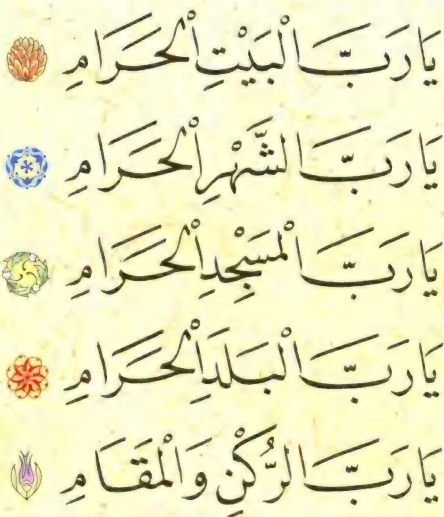 يَا رَبَّ الْبَيْتِ الْحَرَامِ
يَا رَبَّ الشَّهْرِ الْحَرَامِ
يَا رَبَّ الْمَسْجِدِ الْحَرَامِ
يَا رَبَّ الْبَلَدِ الْحَرَامِ
يَا رَبَّ الرُّكْنِ وَالْمَقَامِ